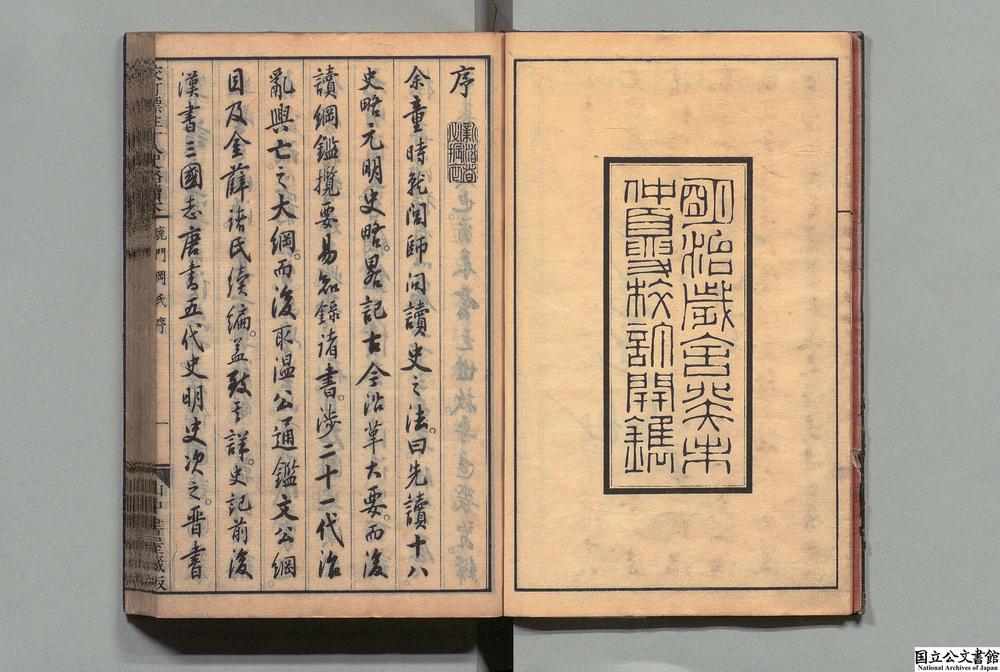 明治歲舍癸未
仲夏校訂開鐫
序
余童時就閭師问讀史之法。曰先讀十八
史略元明史略。畧記古今沿革大要。而後
讀綱鑑攬要易知錄諸書。涉二十一代治
亂興亡之大綱。而後取溫公通鑑文公綱
目及金薛諸氏續編。益致其詳。史記前後
漢書三國志唐書五代史明史次之。晋書
鹿門岡氏序
国立公文書館
National Archives of Japan